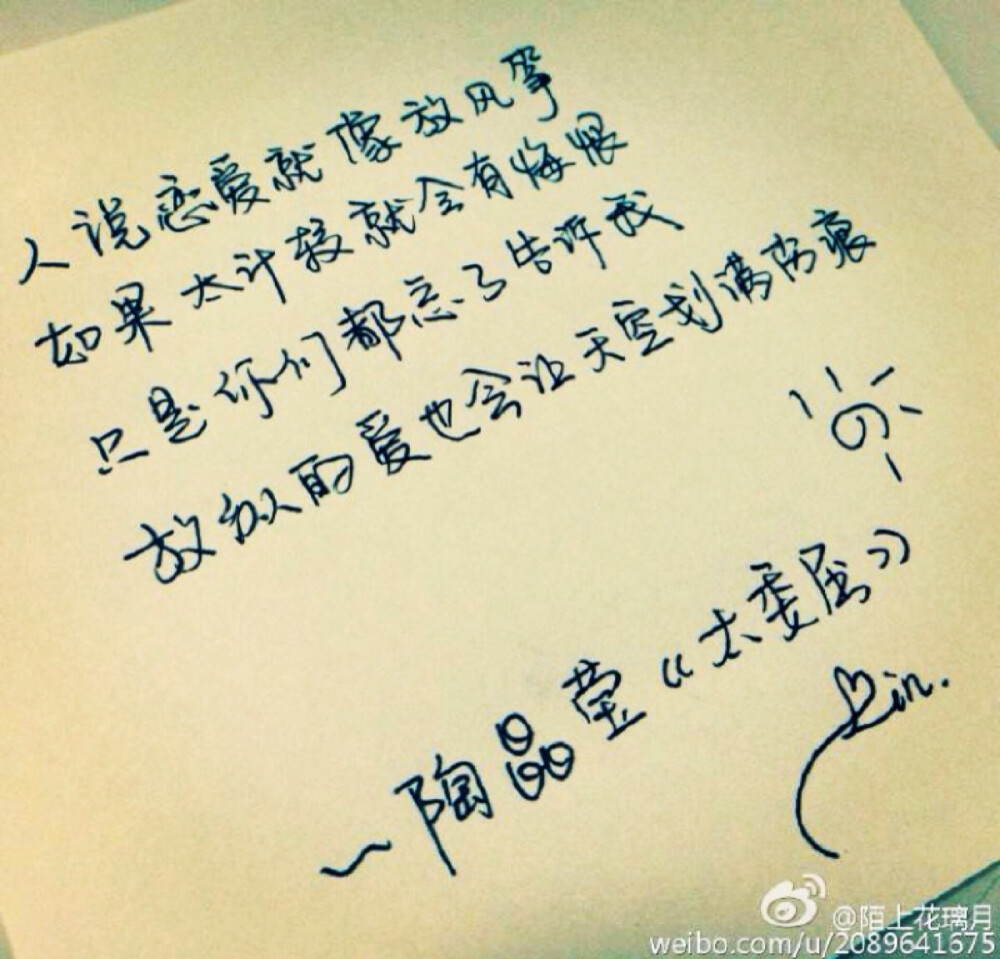 人说恋爱就像放风筝
如果太计较就会有悔恨
只是你们都忘了告诉我
放纵的爱也会让天空划满伤痕
～陶晶莹《太委屈》
in.
@陌上花璃月
weibo.com/u/2089641375